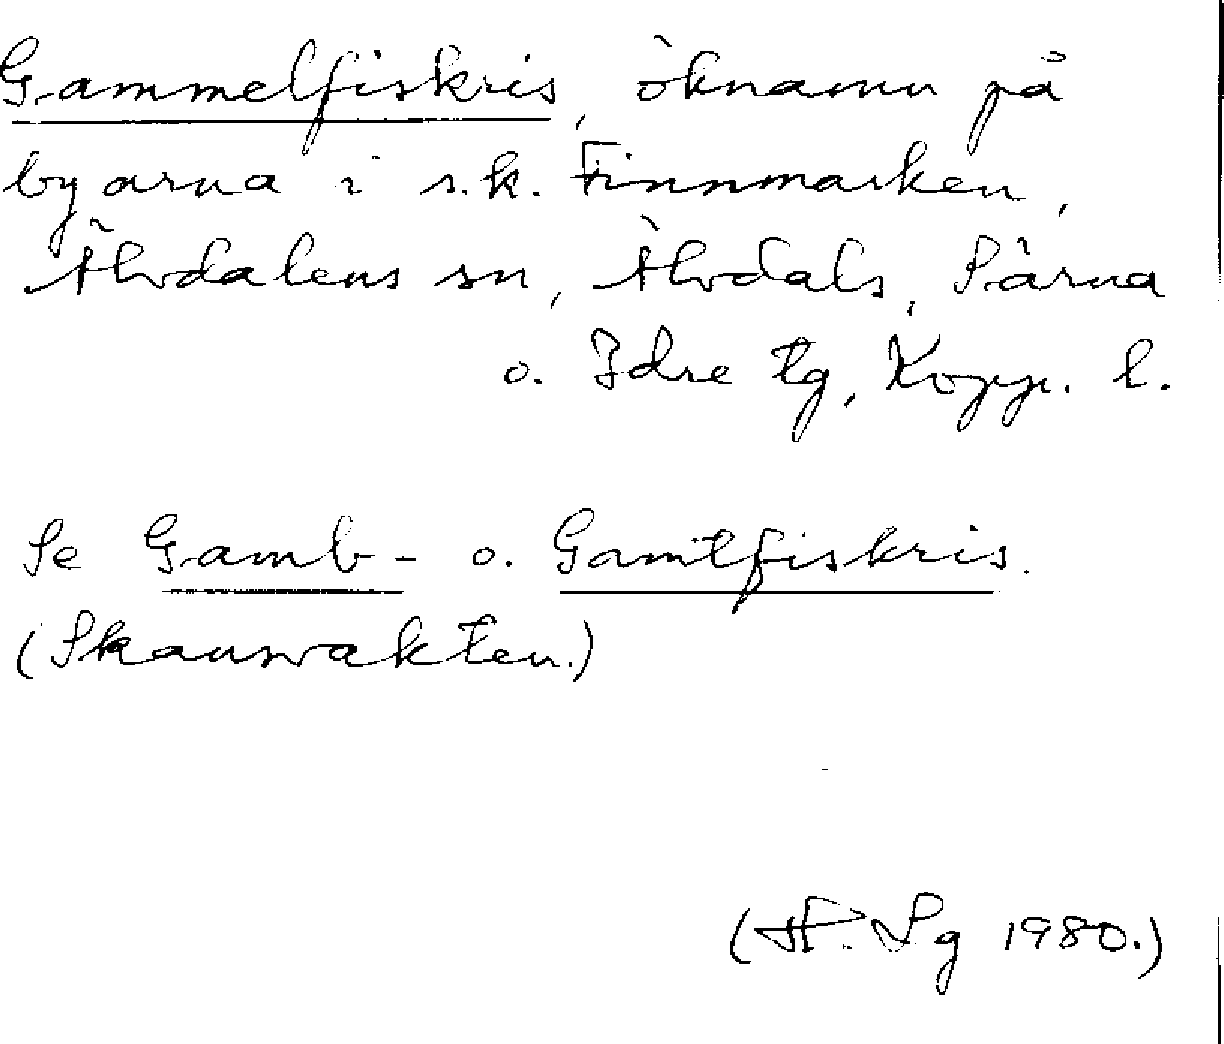 Gammelfiskris, öknamn på
byarna i s.k. Finnmarken,
Älvdalens sn, Älvdals, Särna
o. Idre tg, Kopp. l.
Se Gamb- o. Gamtfiskris.
(Skansvakten.)
1980.)